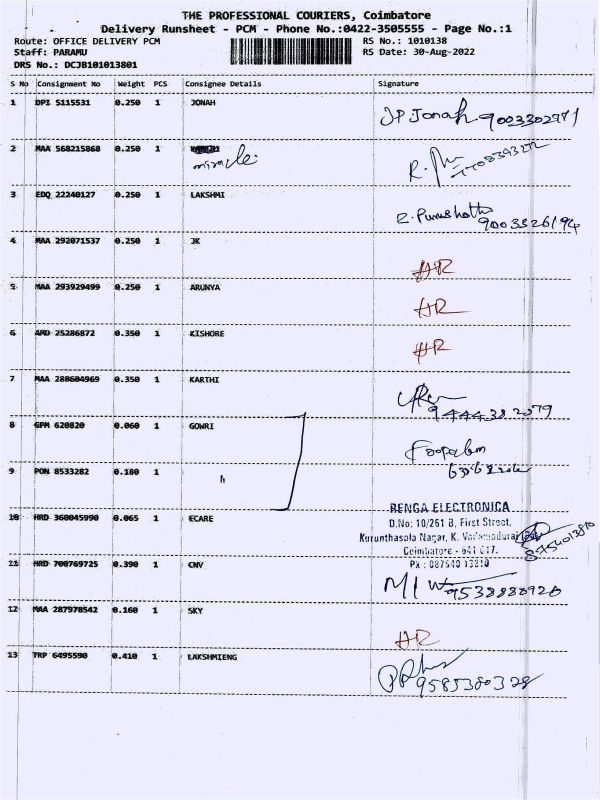 THE PROFESSIONAL COURIERS, Coimbatore
Delivery Runsheet - PCM - Phone No.:0422-3505555 - Page No.:1
Route: OFFICE DELIVERY PCM RS No.: 1010138
Staff: PARAMU RS Date: 30-Aug-2022
DRS No.: DCJB101013801
S No Consignment No Weight PCS Consignee Details Signature
1 DPI 5115531 0.250 1 JONAH
J.P. Jonah 9003302971
2 MAA 568215868 0.250 1
miracle.
3 EDQ 22240127 0.250 1 LAKSHMI
9003326194
4 MAA 292071537 0.250 1 JK
HR
5 MAA 293929499 0.250 1 ARUNYA
HR
6 AMD 25286872 0.350 1 KISHORE
HR
7 MAA 288604969 0.350 1 KARTHI
9444382079
8 GPM 620820 0.060 1 GOWRI
9 PON 8533282 0.180 1
10 HRD 360045990 0.065 1 ECARE
RENGA ELECTRONICA
D.No: 10/261 B, First Street,
Kurunthasala Nagar, K. Vadamadurai
Coimbatore - 641 017.
Ph : 087540 13810
8754013810
11 HRD 700769725 0.390 1 CNV
9538880920
12 MAA 287978542 0.160 1 SKY
HR
13 TRP 6495590 0.410 1 LAKSHMIENG
9585380328